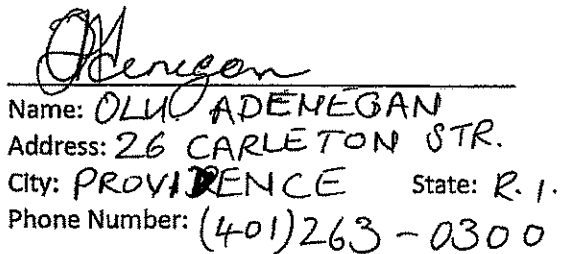 Adenegan
Name: OLU ADENEGAN
Address: 26 CARLETON STR.
City: PROVIDENCE State: R.I.
Phone Number: (401)263-0300